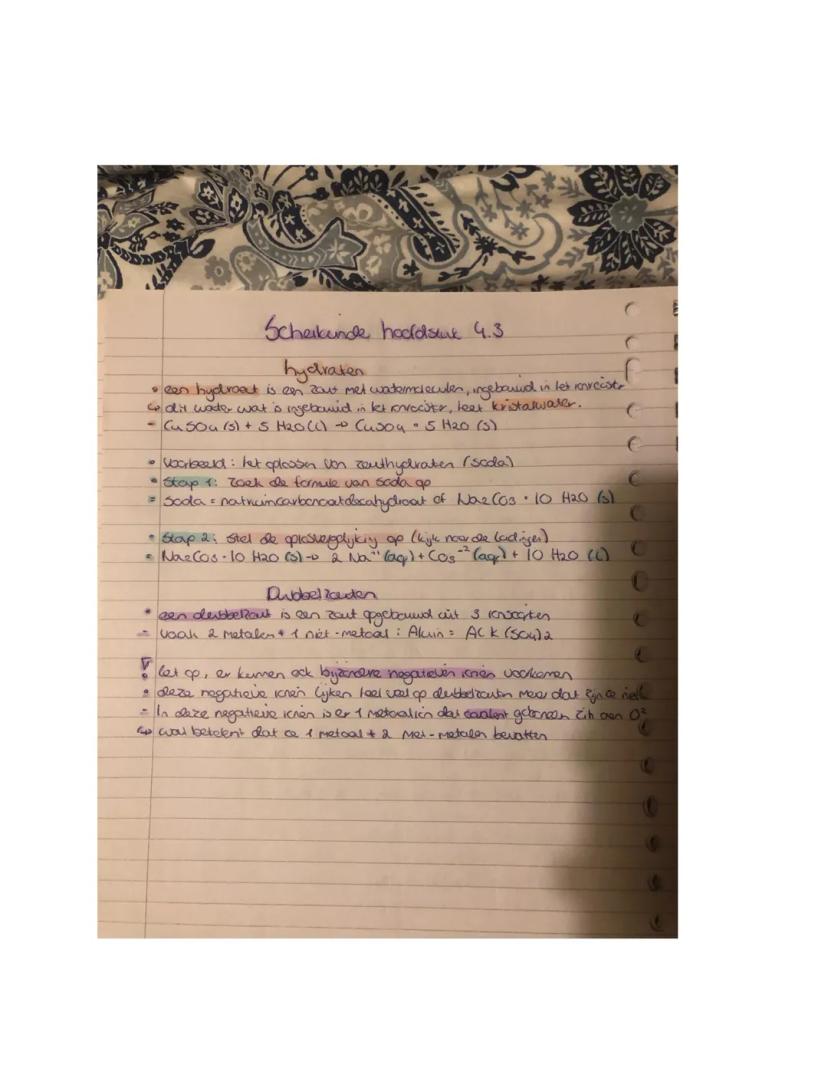 Scheikunde hoofdstuk 4.3
hydraten
• een hydraat is een zout met watermoleculen, ingebouwd in het ionrooster
↳ dit water wat is ingebouwd in het ionrooster, heet kristalwater.
- CuSO4 (s) + 5 H2O (l) → CuSO4 • 5 H2O (s)
• Voorbeeld: het oplossen van zouthydraten (soda)
• Stap 1: Zoek de formule van soda op
= Soda = natriumcarbonaatdecahydraat of Na2CO3 • 10 H2O (s)
• Stap 2: Stel de oplosvergelijking op (kijk naar de ladingen)
= Na2CO3 • 10 H2O (s) → 2 Na⁺ (aq) + CO3⁻² (aq) + 10 H2O (l)
Dubbelzouten
• een dubbelzout is een zout opgebouwd uit 3 ionsoorten
= vaak 2 metalen + 1 niet-metaal: Aluin = Al K (SO4)2
! let op, er kunnen ook bijzondere negatieven ionen voorkomen
• deze negatieve ionen lijken heel veel op dubbelzouten maar dat zijn ze niet
= In deze negatieve ionen is er 1 metaalion dat covalent gebonden zit aan O²
↳ wat betekent dat ze 1 metaal + 2 niet-metalen bevatten